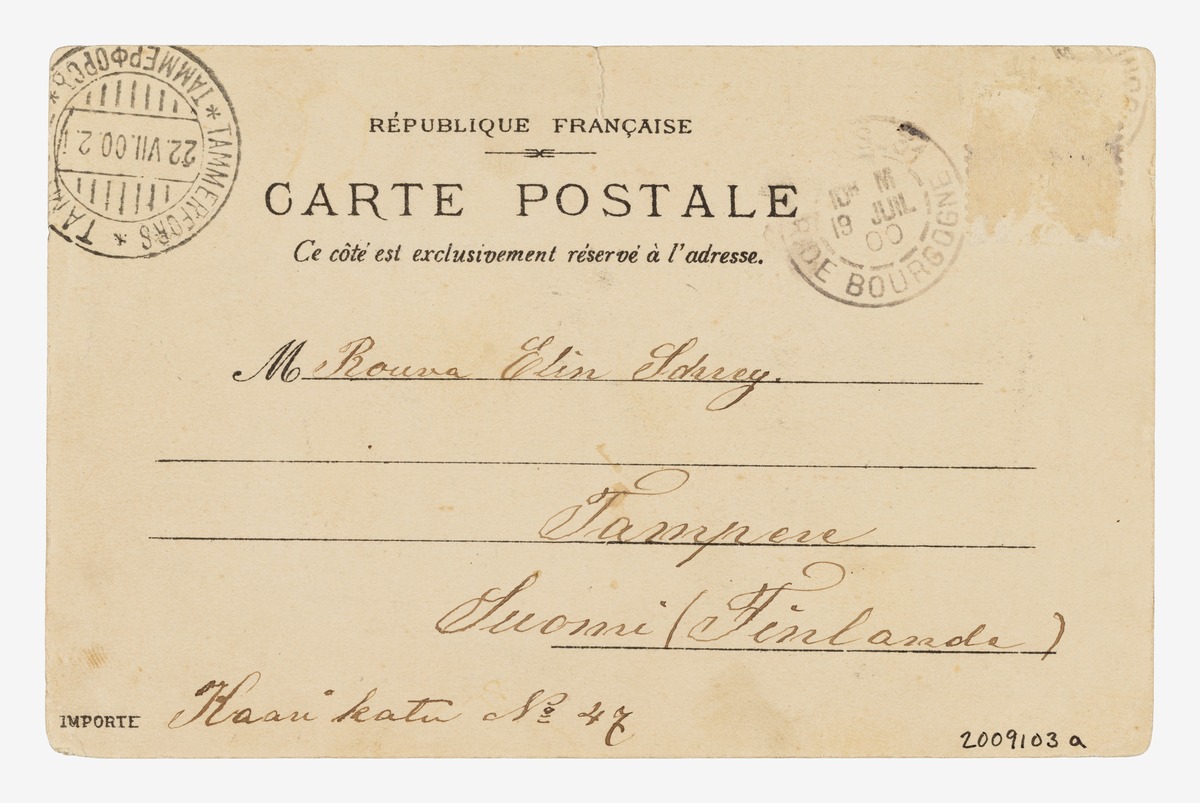 RÉPUBLIQUE FRANÇAISE
CARTE POSTALE
Ce côté est exclusivement réservé à l'adresse.
TAMMERFORS * ТАММЕРФОРСЪ *
22.VII.00.2
10 M
19 JUIL
00
DE BOURGOGNE
M Rouva Elin
Tampere
Suomi (Finlande)
Kaari katu No 47
IMPORTÉ
2009103 a